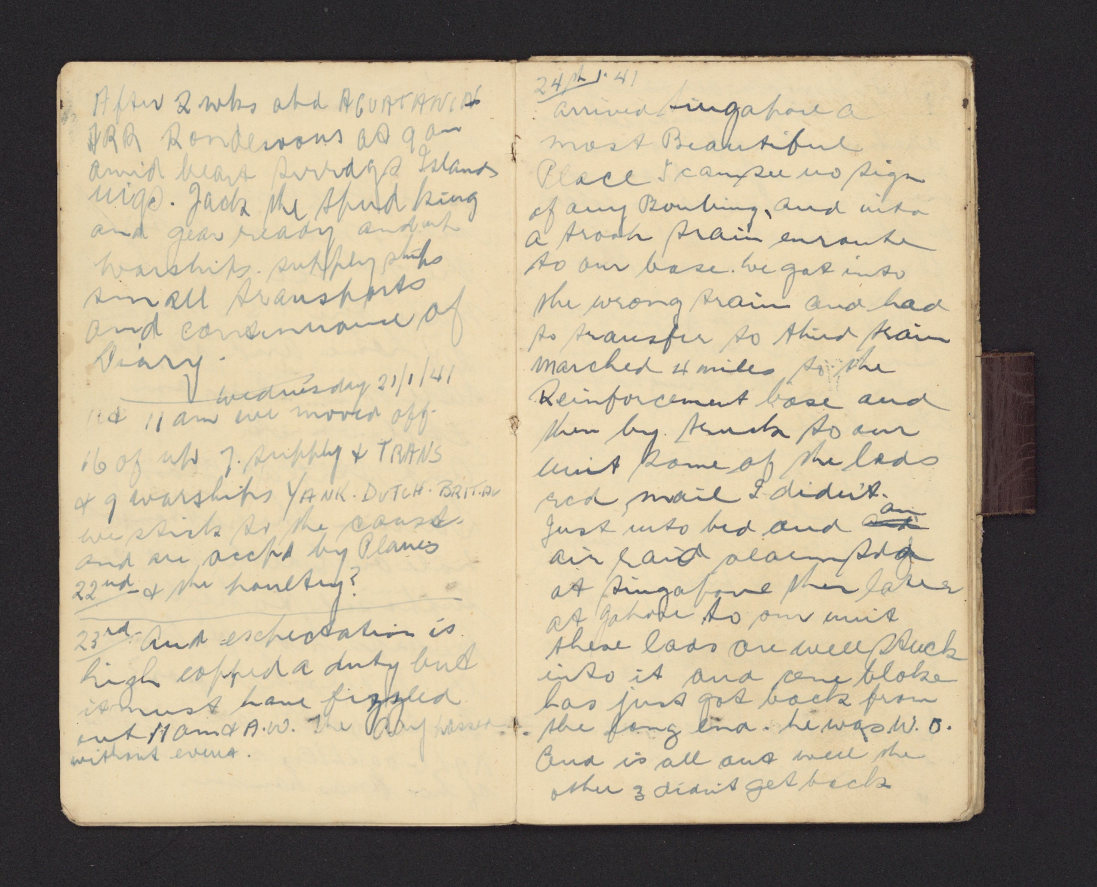 After 2 wks abd AQUATANIA
ARR Rondesvous at 9 am
amid heart Islands
Jack the Spud king
and gear ready and
warships. supply ships
small transports
and continuance of
Diary.
Wednesday 21/1/41
11 am we moved off.
16 of us 7. supply & TRANS
& 9 warships YANK. DUTCH. BRIT. AU
we stick to the coast.
and are by Planes
22nd & the poultry?
23rd. And expectation is
high copped a duty but
it must have fizzled
out 11 am & A.W. The Day passes
without event.
24th 1. 41
arrived Singapore a
most Beautiful
Place I can see no sign
of any Bombing, and into
a troop train enroute
to our base. We got into
the wrong train and had
to transfer to third train
marched 4 miles to the
Reinforcement base and
then by truck to our
unit some of the lads
recd mail I didn't.
Just into bed and an
air raid alarm
at Singapore then later
at Johore to our unit
these lads are well stuck
into it and one bloke
has just got back from
the end. he was W. O.
And is all out well the
other 3 didn't get back